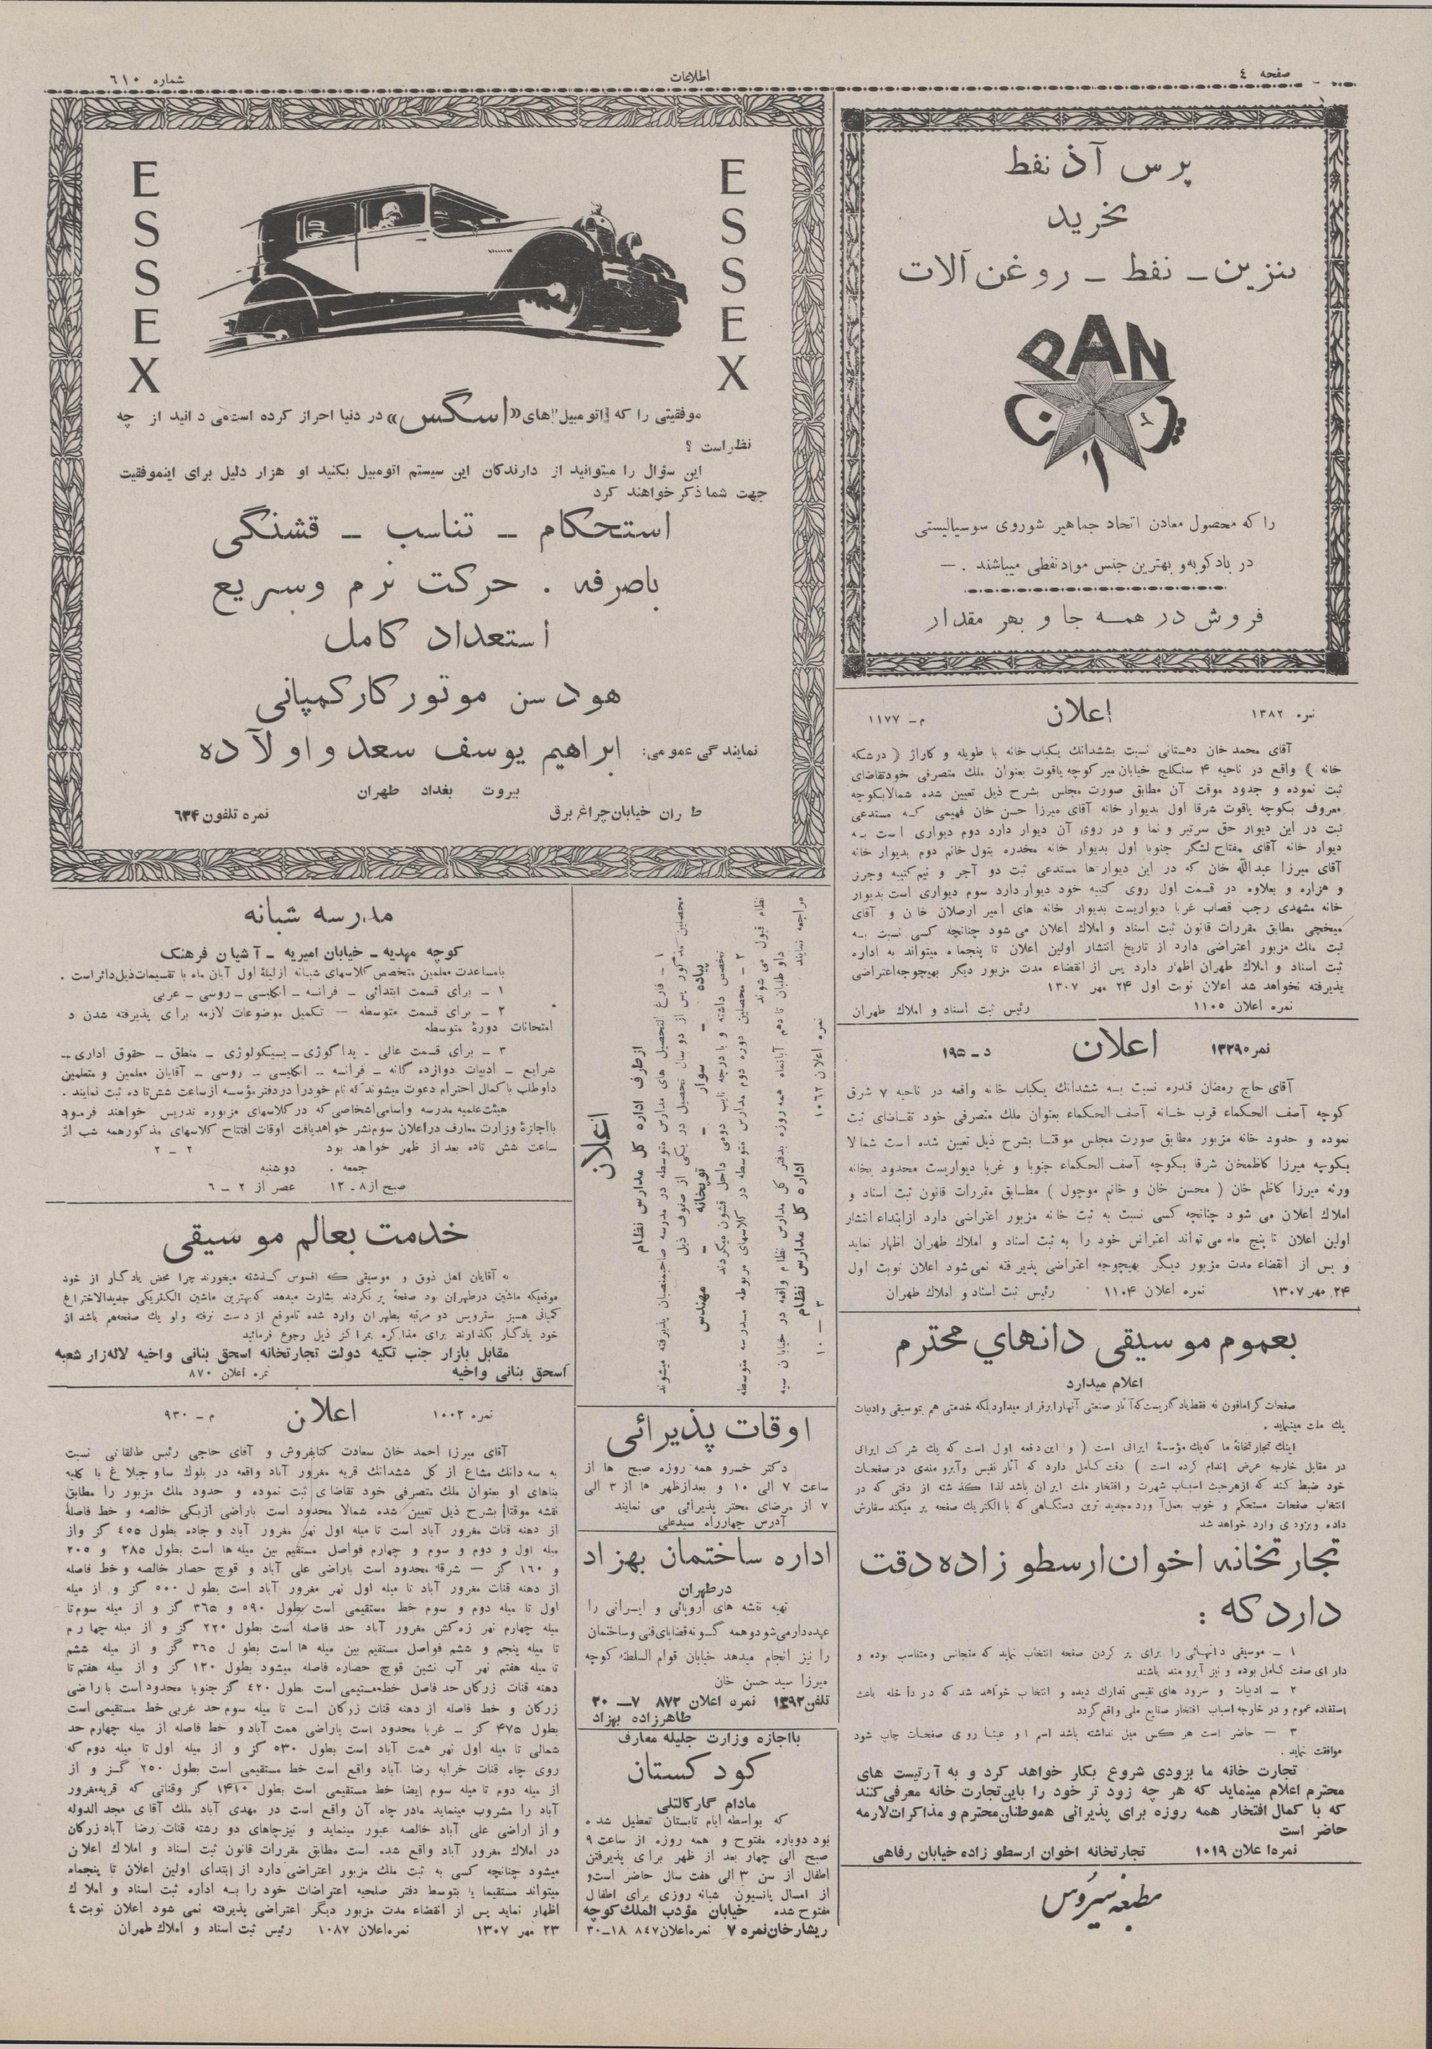 صفحه ٤
اطلاعات
شماره ٦١٠
پرس آذ نفط
بخرید
بنزین ـ نفط ـ روغن آلات
PAN
پرس آذ ن
را که محصول معادن اتحاد جماهیر شوروی سوسیالیستی
در بادکوبه و بهترین جنس مواد نفطی میباشند . —
فروش در همه جا و بهر مقدار
نمره ۱۳۸۲
اعلان
م ـ ۱۱۷۷
آقای محمد خان دهستانی نسبت بششدانك یكباب خانه با طویله و كاراژ ( درشكه
خانه ) واقع در ناحیه ۴ سنگلج خیابان میر كوچه یاقوت بعنوان ملك متصرفی خودتقاضای
ثبت نموده و حدود موقت آن مطابق صورت مجلس بشرح ذیل تعیین شده شمالا بكوچه
معروف بكوچه یاقوت شرقا اول بدیوار خانه آقای میرزا حسن خان فهیمی كه مستدعی
ثبت در این دیوار حق سرتیر و نما و در روی آن دیوار دارد دوم دیواری است به
دیوار خانه آقای مفتاح لشگر جنوبا اول بدیوار خانه مخدره بتول خانم دوم بدیوار خانه
آقای میرزا عبدالله خان كه در این دیوارها مستدعی ثبت دو آجر و نیم كتیبه وجرز
و هزاره و بعلاوه در قسمت اول روی كتیبه خود دیوار دارد سوم دیواری است بدیوار
خانه مشهدی رجب قصاب غربا دیواریست بدیوار خانه های امیر ارصلان خان و آقای
میخچی مطابق مقررات قانون ثبت اسناد و املاك اعلان می شود چنانچه كسی نسبت به
ثبت ملك مزبور اعتراضی دارد از تاریخ انتشار اولین اعلان تا پنجماه میتواند به اداره
ثبت اسناد و املاك طهران اظهار دارد پس از انقضاء مدت مزبور دیگر بهیچوجه اعتراضی
پذیرفته نخواهد شد اعلان نوبت اول ۲۴ مهر ۱۳۰۷
نمره اعلان ۱۱۰۵ رئیس ثبت اسناد و املاك طهران
نمره ۱۳۲۹۰
اعلان
د ـ ۱۹۵
آقای حاج رمضان قندره نسبت به ششدانك یكباب خانه واقعه در ناحیه ۷ شرق
كوچه آصف الحكماء قرب خانه آصف الحكماء بعنوان ملك متصرفی خود تقاضای ثبت
نموده و حدود خانه مزبور مطابق صورت مجلس موقتا بشرح ذیل تعیین شده است شمالا
بكوچه میرزا كاظمخان شرقا بكوچه آصف الحكماء جنوبا و غربا دیواریست محدود بخانه
ورثه میرزا كاظم خان ( محسن خان و خانم موچول ) مطابق مقررات قانون ثبت اسناد و
املاك اعلان می شود چنانچه كسی نسبت به ثبت خانه مزبور اعتراضی دارد ازابتداء انتشار
اولین اعلان تا پنج ماه می تواند اعتراض خود را به ثبت اسناد و املاك طهران اظهار نماید
و پس از انقضاء مدت مزبور دیگر بهیچوجه اعتراضی پذیرفته نمی شود اعلان نوبت اول
۲۴ مهر ۱۳۰۷ نمره اعلان ۱۱۰۴ رئیس ثبت اسناد و املاك طهران
بعموم موسیقی دانهاي محترم
اعلام میدارد
صفحات گرامافون نه فقط یادگاریست كه آثار صنعتی آنهارا برقرار میدارد بلكه خدمتی هم بموسیقی و ادبیات
یك ملت مینماید .
اینك تجارتخانهٔ ما كه یك مؤسسهٔ ایرانی است ( و این دفعه اول است كه یك شركت ایرانی
در مقابل خارجه عرض اندام كرده است ) دقت كامل دارد كه آثار نفیس وآبرومندی در صفحات
خود ضبط كند كه ازهرحیث اسباب شهرت و افتخار ملت ایران باشد لذا گذشته از دقتی كه در
انتخاب صفحات مستحكم و خوب بعمل آورد مجدید ترین دستگاهی كه با الكتریك صفحه پر میكند سفارش
داده و بزودی وارد خواهد شد
تجارتخانه اخوان ارسطو زاده دقت
دارد كه :
۱ ـ موسیقی دانهائی را برای پر كردن صفحه انتخاب نماید كه متجانس ومتناسب بوده و
دارای صفت كامل بوده و نیز آبرومند باشند
۲ ـ ادبیات و سرود های نفیسی تدارك دیده و انتخاب خواهد شد كه در داخله باعث
استفاده عموم و در خارجه اسباب افتخار صنایع ملی واقع گردد
۳ — حاضر است هر كس میل نداشته باشد اسم او عینا روی صفحات چاپ شود
موافقت نماید .
تجارت خانه ما بزودی شروع بكار خواهد كرد و به آرتیست های
محترم اعلام مینماید كه هر چه زود تر خود را باین تجارت خانه معرفی كنند
كه با كمال افتخار همه روزه برای پذیرائی هموطنان محترم و مذاكرات لازمه
حاضر است
نمره اعلان ۱۰۱۹ تجارتخانه اخوان ارسطو زاده خیابان رفاهی
مطبعه سیروس
ESSEX
ESSEX
موفقیتی را كه اتومبیل های «اسگس» در دنیا احراز كرده است می دانید از چه
نظر است ؟
این سؤال را میتوانید از دارندگان این سیستم اتومبیل بكنید او هزار دلیل برای اینموفقیت
جهت شما ذكر خواهند كرد
استحكام ـ تناسب ـ قشنگی
باصرفه . حركت نرم وسریع
استعداد كامل
هودسن موتور كار كمپانی
نمایندگی عمومی: ابراهیم یوسف سعد و اولآده
بیروت بغداد طهران
طهران خیابان چراغ برق
نمره تلفون ۶۳۴
مدرسه شبانه
كوچه مهدیه ـ خیابان امیریه ـ آشیان فرهنك
بامساعدت معلمین متخصص كلاسهای شبانه از لیلهٔ اول آبان ماه با تقسیمات ذیل دائر است .
۱ ـ برای قسمت ابتدائی ـ فرانسه ـ انگلیسی ـ روسی ـ عربی
۲ ـ برای قسمت متوسطه — تكمیل موضوعات لازمه برای پذیرفته شدن د
امتحانات دورهٔ متوسطه
۳ ـ برای قسمت عالی . پداگوژی ـ پسیكولوژی ـ منطق ـ حقوق اداری ـ
شرایع ـ ادبیات دوازده گانه ـ فرانسه ـ انگلیسی ـ روسی ـ آقایان معلمین و متعلمین
داوطلب با كمال احترام دعوت میشوند كه نام خودرا دردفتر مؤسسه ازساعت شش تا ده ثبت نمایند .
هیئت علمیه مدرسه واسامی اشخاصی كه در كلاسهای مزبوره تدریس خواهند فرمود
بااجازهٔ وزارت معارف دراعلان سوم نشر خواهدیافت اوقات افتتاح كلاسهای مذكور همه شب از
ساعت شش تاده بعد از ظهر خواهد بود ۲ ـ ۲
جمعه . دوشنبه
صبح از ۸ ـ ۱۲ عصر از ۲ ـ ۶
خدمت بعالم موسیقی
به آقایان اهل ذوق و موسیقی كه افسوس گذشته میخورند چرا محض یادگار از خود
موقعیكه ماشین درطهران بود صفحه پر نكردند بشارت میدهد كه بهترین ماشین الكتریكی جدیدالاختراع
كمپانی هسیز سفرویس دو مرتبه بطهران وارد شده تاموقع از دست نرفته ولو یك صفحه هم باشد از
خود یادگار بگذارند برای مذاكره بمراكز ذیل رجوع فرمائید
مقابل بازار جنب تكیه دولت تجارتخانه اسحق بنانی واخیه لاله زار شعبه
اسحق بنانی واخیه نمره اعلان ۸۷۰
نمره ۱۰۰۲
اعلان
م ـ ۹۳۰
آقای میرزا احمد خان سعادت كتابفروش و آقای حاجی رئیس طالقانی نسبت
به سه دانك مشاع از كل ششدانك قریه مغرور آباد واقعه در بلوك ساوجبلاغ با كلیه
بناهای او بعنوان ملك متصرفی خود تقاضای ثبت نموده و حدود ملك مزبور را مطابق
نقشه موقتا بشرح ذیل تعیین شده شمالا محدود است باراضی ازبكی خالصه و خط فاصلهٔ
از دهنه قنات مغرور آباد است تا میله اول نهر مغرور آباد و جاده بطول ٤٥٥ گز واز
میله اول و دوم و سوم و چهارم فواصل مستقیم بین میله ها است بطول ۲۸۵ و ۲۰۵
و ۱۶۰ گز — شرقا محدود است باراضی علی آباد و قوچ حصار خالصه و خط فاصله
از دهنه قنات مغرور آباد تا میله اول نهر مغرور آباد است بطول ۵۰۰ گز و از میله
اول تا میله دوم و سوم خط مستقیمی است بطول ۵۹۰ و ۳۶۵ گز و از میله سوم تا
میله چهارم نهر زه كش مغرور آباد حد فاصله است بطول ۲۲۰ گز و از میله چهارم
تا میله پنجم و ششم فواصل مستقیم بین میله ها است بطول ۳۶۵ گز و از میله ششم
تا میله هفتم نهر آب نشین قوچ حصاره فاصله میشود بطول ۱۲۰ گز و از میله هفتم تا
دهنه قنات زركان حد فاصل خط مستیمی است بطول ۴۲۰ گز جنوبا محدود است باراضی
زركان و خط فاصله از دهنه قنات زركان است تا میله سوم حد غربی خط مستقیمی است
بطول ۴۷۵ گز ـ غربا محدود است باراضی همت آباد و خط فاصله از میله چهارم حد
شمالی تا میله اول نهر همت آباد است بطول ۵۳۰ گز و از میله اول تا میله دوم كه
روی چاه قنات خرابه رضا آباد واقع است خط مستقیمی است بطول ۲۵۰ گز و از
از میله دوم تا میله سوم ایضا خط مستقیمی است بطول ۱۴۱۰ گز وقناتی كه قریه مغرور
آباد را مشروب مینماید مادر چاه آن واقع است در مهدی آباد ملك آقای مجد الدوله
و از اراضی علی آباد خالصه عبور مینماید و نیز چاهای دو رشته قنات رضا آباد زركان
در املاك مغرور آباد واقع شده است مطابق مقررات قانون ثبت اسناد و املاك اعلان
میشود چنانچه كسی به ثبت ملك مزبور اعتراضی دارد از ابتدای اولین اعلان تا پنجماه
میتواند مستقیما یا بتوسط دفتر صلحیه اعتراضات خود را به اداره ثبت اسناد و املاك
اظهار نماید پس از انقضاء مدت مزبور دیگر اعتراضی پذیرفته نمی شود اعلان نوبت ٤
۲۳ مهر ۱۳۰۷ نمره اعلان ۱۰۸۷ رئیس ثبت اسناد و املاك طهران
اعلان
ازطرف اداره كل مدارس نظام
۱ ـ فارغ التحصیل های مدارس متوسطه در مدرسه صاحبمنصبان پذیرفته میشوند
محصلین مذكور پس از دو سال تحصیل در یكی از صفوف ذیل
پیاده ـ سوار ـ توپخانه ـ مهندس
تخصص داشته و با درجه نایب دومی داخل قشون میگردند
۲ ـ محصلین دوره دوم مدارس متوسطه در كلاسهای مربوطه مدرسه متوسطه
نظام قبول می شوند
داوطلبان تا دهم آبانماه همه روزه بدفتر كل مدارس نظام واقعه در خیابان سپه
مراجعه نمایند
اداره كل مدارس نظام
نمره اعلان ۱۰۶۲ ۳ — ۱۰
اوقات پذیرائی
دكتر خسرو همه روزه صبح ها از
ساعت ۷ الی ۱۰ و بعدازظهر ها از ۳ الی
۷ از مرضای محتر پذیرائی می نمایند
آدرس چهارراه سیدعلی
اداره ساختمان بهزاد
درطهران
تهیه نقشه های اروپائی و ایرانی را
عهده دار می شود و همه گونه قضایای فنی و ساختمان
را نیز انجام میدهد خیابان قوام السلطنه كوچه
میرزا سید حسن خان
تلفن ۱۳۹۲ نمره اعلان ۸۷۲ ۷ ـ ۲۰
طاهرزاده بهزاد
بااجازه وزارت جلیله معارف
كودكستان
مادام گارگالتلی
كه بواسطه ایام تابستان تعطیل شده
بود دوباره مفتوح و همه روزه از ساعت ۹
صبح الی چهار بعد از ظهر برای پذیرفتن
اطفال از سن ۳ الی هفت سال حاضر است و
از امسال پانسیون شبانه روزی برای اطفال
مفتوح شده خیابان مؤدب الملك كوچه
ریشارخان نمره ۷ نمره اعلان ۸۴۷ ۱۸ـ۳۰